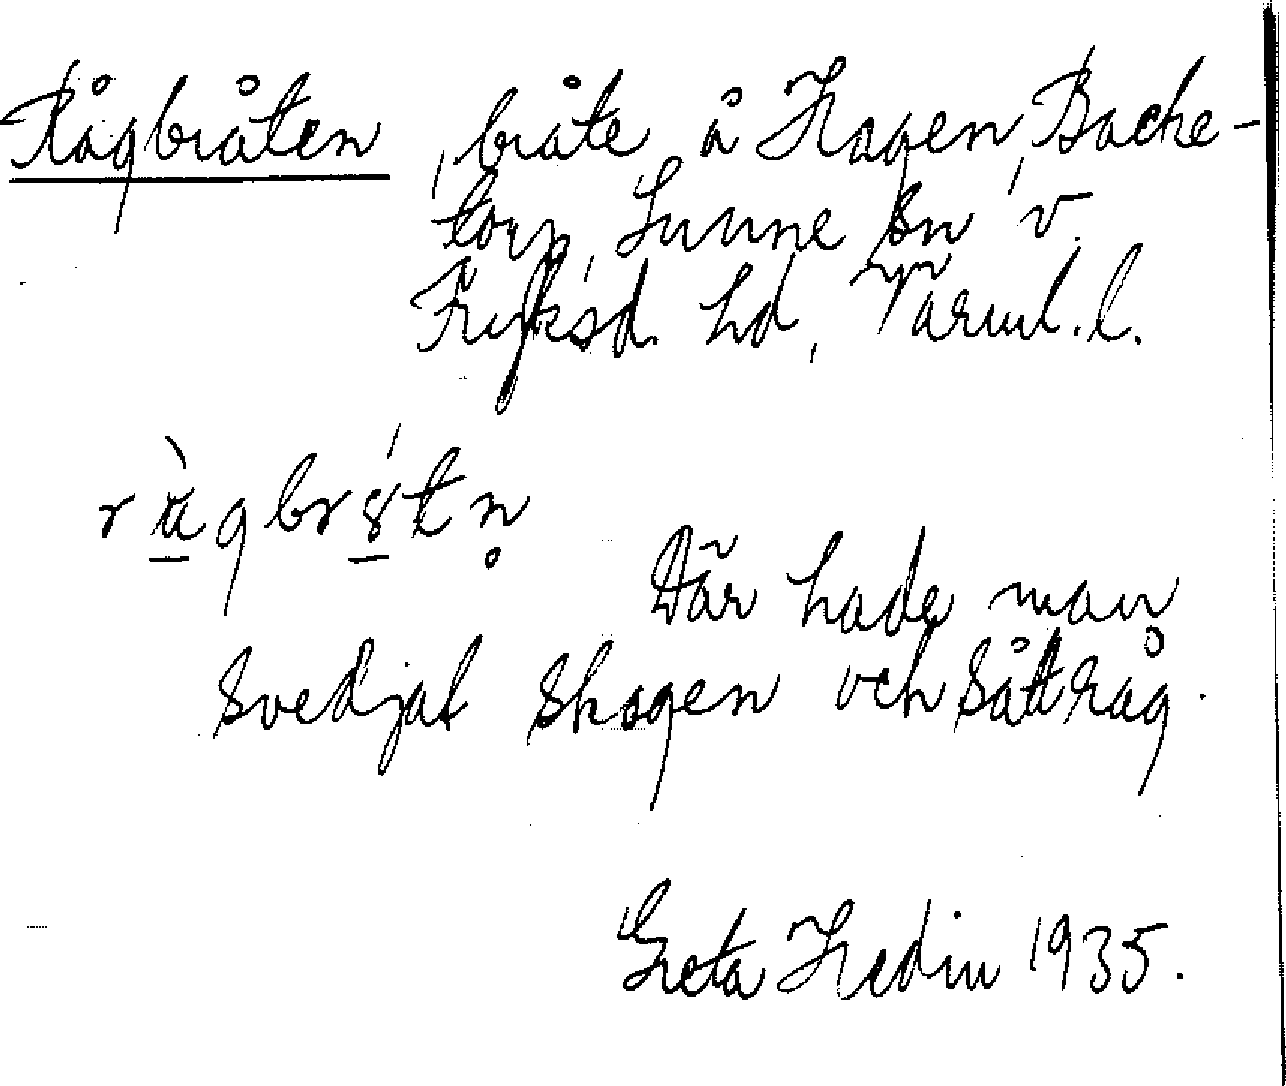 Rågbråten, bråte å Hagen, Backe-
torp, Sunne sn, v.
Fryksd. hd, Värml. l.
Där hade man
svedjat skogen och sått råg.
Greta Hedin 1935.